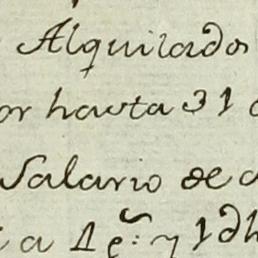 Alquilados
or hasta 31
Salario de
a 1º: y 1 dh